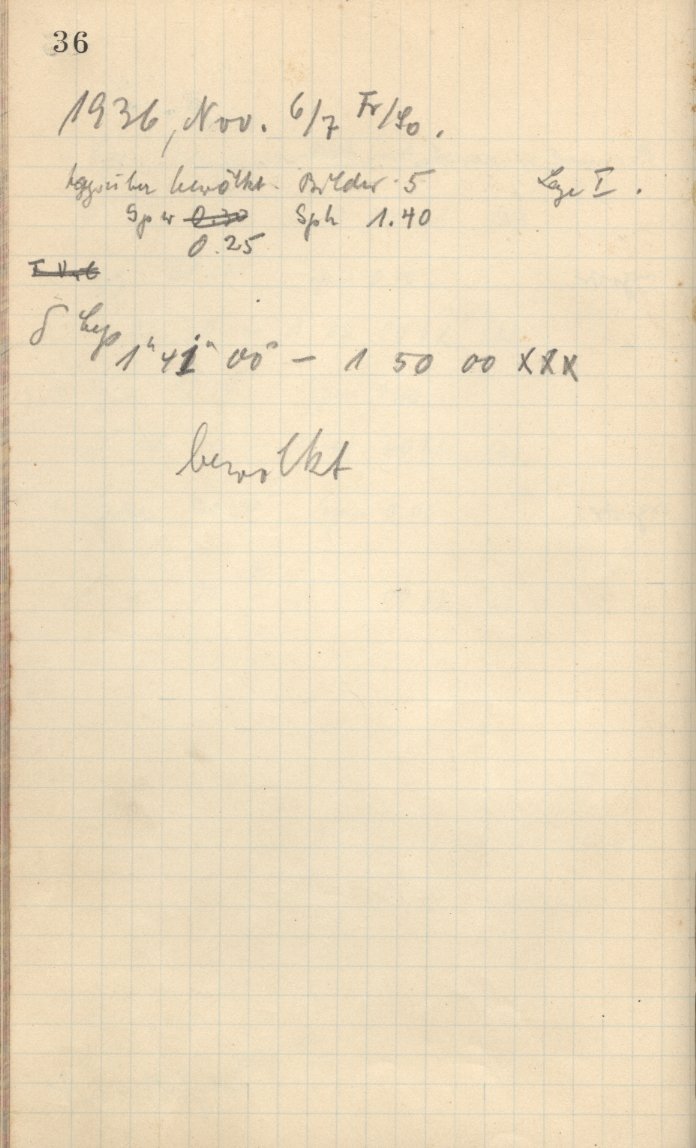 36
1936, Nov. 6/7 Fr/So.
tagsüber bewölkt. Bilder 5 Lage I.
Sp w 0.30 Sph 1.40
0.25
δ Cep 1h 41m 00s – 1 50 00 XXX
bewölkt